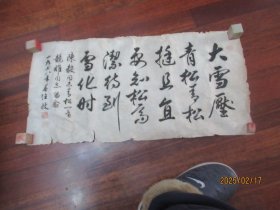 大雪壓
青松青松
挺且直
要知松高
潔待到
雪化时
陳毅同志青松
2025/02/17